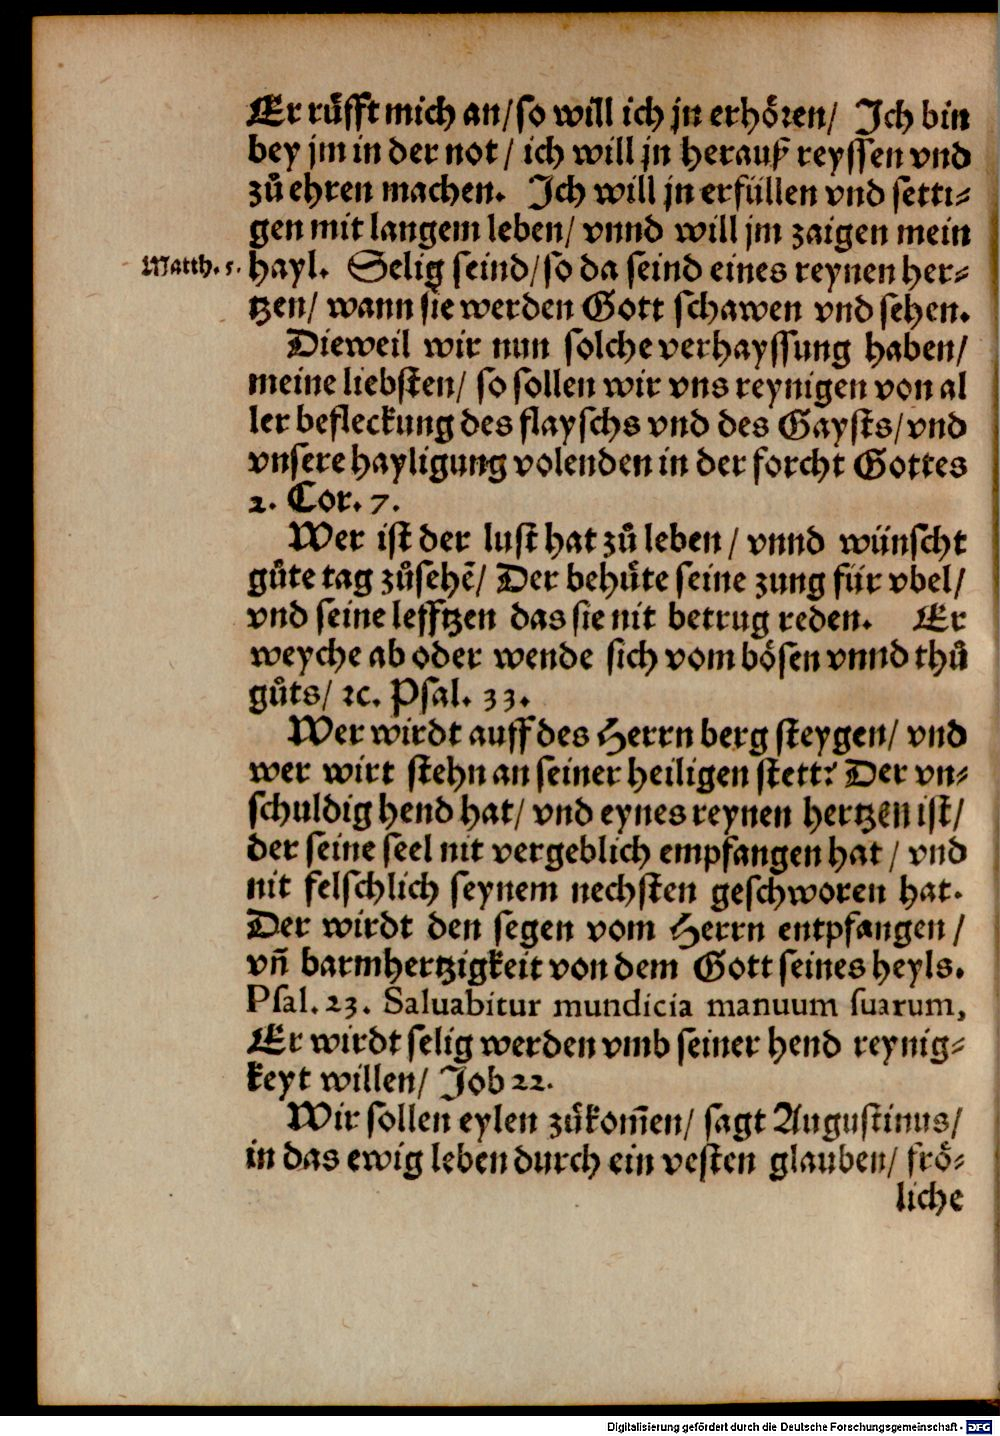 Er růfft mich an/ so will ich jn erhören/ Ich bin
bey jm in der not/ ich will jn herauß reyssen vnd
zů ehren machen. Ich will jn erfüllen vnd setti⸗
gen mit langem leben/ vnnd will jm zaigen mein
Matth. 5. hayl. Selig seind/ so da seind eines reynen her⸗
tzen/ wann sie werden Gott schawen vnd sehen.
Dieweil wir nun solche verhayssung haben/
meine liebsten/ so sollen wir vns reynigen von al
ler befleckung des flayschs vnd des Gaysts/ vnd
vnsere hayligung volenden in der forcht Gottes
2. Cor. 7.
Wer ist der lust hat zů leben/ vnnd wünscht
gůte tag zůsehẽ/ Der behůte seine zung für vbel/
vnd seine lefftzen das sie nit betrug reden. Er
weyche ab oder wende sich vom bösen vnnd thů
gůts/ ꝛc. Psal. 33.
Wer wirdt auff des Herrn berg steygen/ vnd
wer wirt stehn an seiner heiligen stett? Der vn⸗
schuldig hend hat/ vnd eynes reynen hertzen ist/
der seine seel nit vergeblich empfangen hat/ vnd
nit felschlich seynem nechsten geschworen hat.
Der wirdt den segen vom Herrn entpfangen/
vñ barmhertzigkeit von dem Gott seines heyls.
Psal. 23. Saluabitur mundicia manuum suarum,
Er wirdt selig werden vmb seiner hend reynig⸗
keyt willen/ Job 22.
Wir sollen eylen zůkom̃en/ sagt Augustinus/
in das ewig leben durch ein vesten glauben/ frö⸗
liche
Digitalisierung gefördert durch die Deutsche Forschungsgemeinschaft - DFG